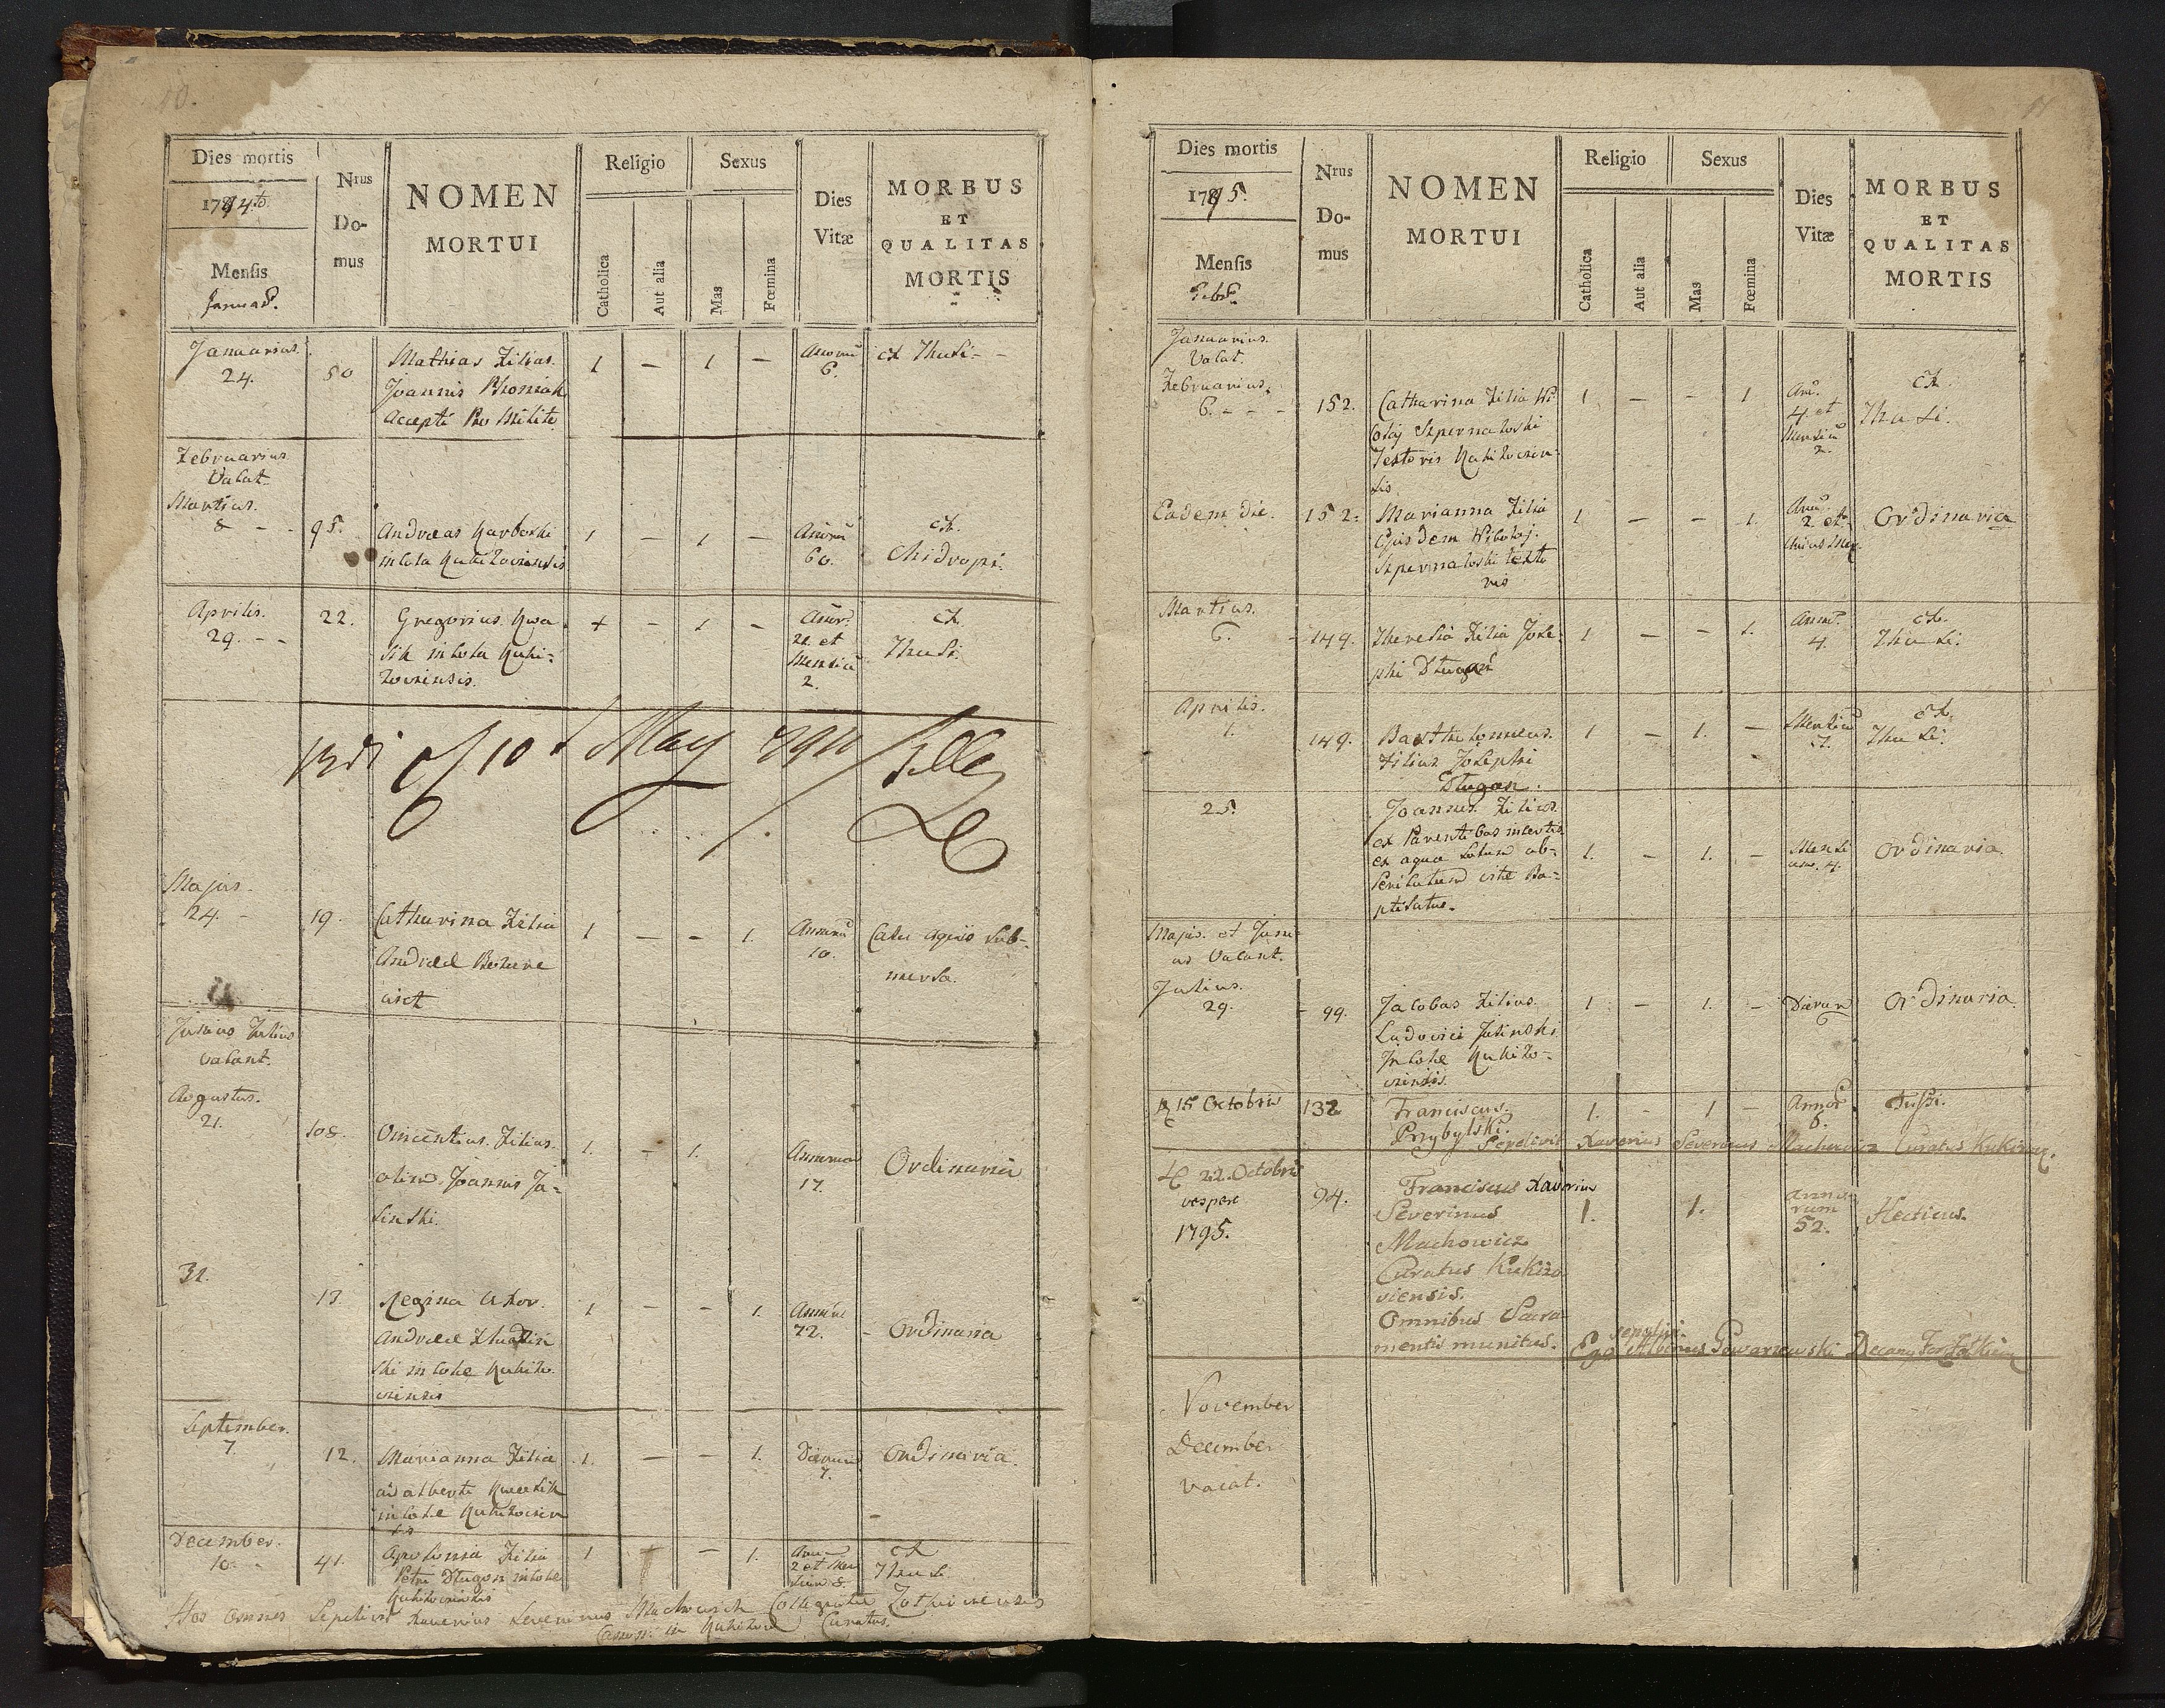 10.
Dies mortis
1794to
Mensis
Januar.
Nrus
Do-
mus
NOMEN
MORTUI
Religio
Catholica
Aut alia
Sexus
Mas
Fœmina
Dies
Vitæ
MORBUS
ET
QUALITAS
MORTIS
Januarius.
24.
50
Mathias Filius
Joannis
accepti Pro Milite
1 — 1 —
Annorũ
6.
ex Thusi -
Februarius
Vacat.
Martius.
8 - -
95.
Andreas Karboski
incola Kukizoviensis
1 — 1 —
Annorũ
60.
ex
Chidropi.
Aprilis.
29. - -
22.
Gregorius Kwa
sik incola Kuki=
zoviensis.
1 - 1 -
Annor.
22 et
Mensiũ
2.
ex
Thusi.
10 May
Majus.
24. -
19.
Catharina Filia
Andreæ
1 — — 1.
Annorũ
10.
Casu aquis sub-
mersa.
Junius Julius
vacant.
Augustus.
21.
108.
Vincentius. Filius
olim Joannis Ja=
sinski.
1. — 1.
Annorum
17.
Ordinaria
31.
13.
Regina Uxor
Andreæ
ski incolæ Kukizo
viensis
1 — — 1.
Annoru
72.
- Ordinaria
September.
7.
12.
Marianna Filia
Adalberti Kwasik
incolæ Kukizovien
sis
1. — — 1.
Dierum
7.
Ordinaria.
December.
10.
41.
Apolonia Filia
Petri Dlugosz incolæ
Kukizoviensis
1 — 1.
Ann
2 et Men
sium 8.
ex
Thusi.
Hos omnes Sepelivit Xaverius Severinus Machowicz Collegiatæ
in Kukizow Curatus.
11
Dies mortis
1795.
Mensis
Febr.
Nrus
Do-
mus
NOMEN
MORTUI
Religio
Catholica
Aut alia
Sexus
Mas
Fœmina
Dies
Vitæ
MORBUS
ET
QUALITAS
MORTIS
Januarius.
Vacat.
Februarius.
6. - - -
152.
Catharina Filia Ni
colaj Szpernaloski
Textoris Kukizovien-
sis
1 — — 1
An.
4. et
Mensiũ
2.
ex
Thusi.
Eadem die.
152.
Marianna Filia
Ejusdem Nicolaj.
Szpernaloski texto
ris
1 — — 1.
Ann.
2 et
unius Men.
Ordinaria
Martius.
6. -
149.
Theresia Filia Jose
phi Dlugosz
1 — — 1.
Anno.
4.
ex
Thusi.
Aprilis.
1.
149.
Bartholomeus.
Filius Josephi
Dlugosz.
1 — 1. —
Mensiũ
7.
ex
Thusi.
25.
Joannes. Filius.
ex Parentibus incertis.
ex aqua
rite Ba=
ptisatus.
1. — 1. —
Mensi
um. 4.
Ordinaria.
Majus. et Juni
us Vacant.
Julius.
29.
- 99.
Jacobus Filius.
Ludovici Jasinski
Incolæ Kukizo-
viensis.
1 — 1. —
Dierum
6
Ordinaria.
15 Octobris
132
Franciscus.
Przybylski.
1. - 1 —
Annor
8.
Tussi.
Sepelivit Xaverius Severinus Machowicz Curatus Kukizov.
22. Octobris
vespere
1795.
94.
Franciscus Xaverius
Severinus
Machowicz
Curatus Kukizo
viensis.
Omnibus Sacra
mentis munitus.
1. 1.
Anno
rum
52.
Hecticus.
sepelivi.
Ego Albinus Gowarzewski Decanus For.
November
December
vacat.